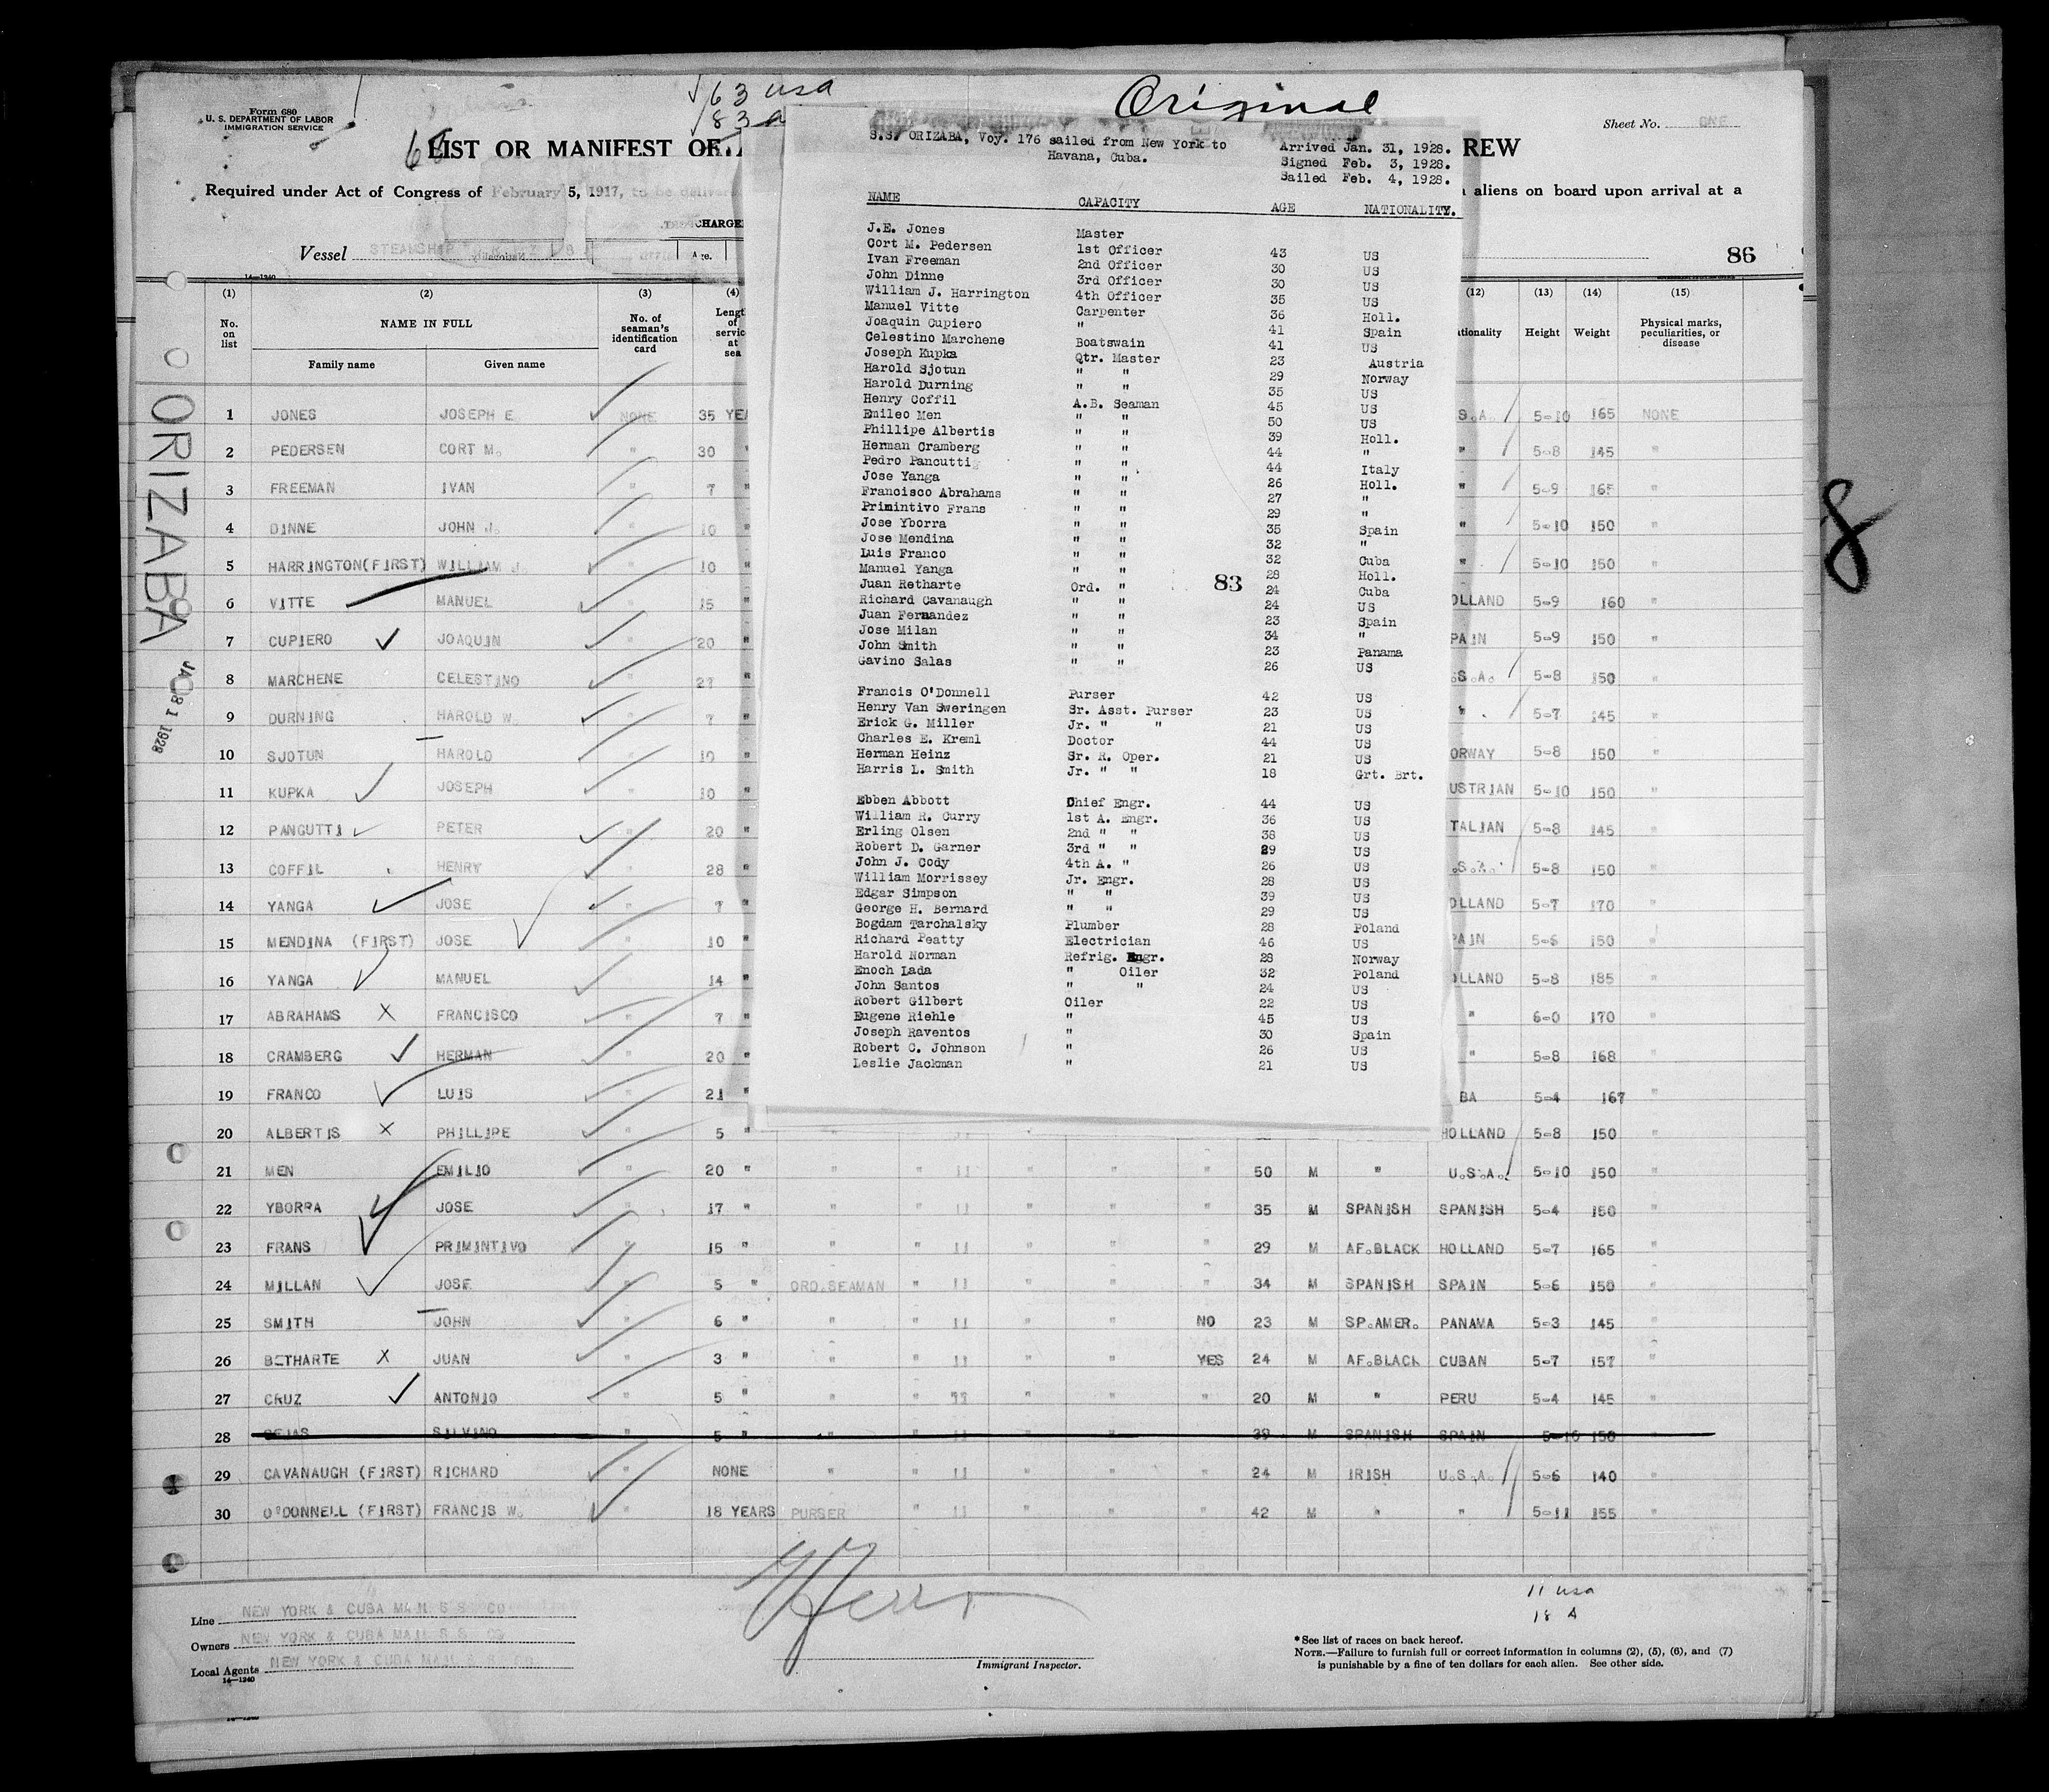 Form 680
U. S. DEPARTMENT OF LABOR
IMMIGRATION SERVICE
63 usa
83 a
Original
Sheet No. ONE
LIST OR MANIFEST OF REW
Required under Act of Congress of February 5, 1917, to be deliver aliens on board upon arrival at a
CHARGE
Vessel STEAMSHIP
Age.
86
14—1240
(1) (2) (3) (4) (12) (13) (14) (15)
No. on list NAME IN FULL No. of seaman's identification card Lengt of servic at sea tionality Height Weight Physical marks, peculiarities, or disease
Family name Given name
ORIZABA
JA 31 1928
8
1 JONES JOSEPH E. NONE 35 YEA S.A. 5-10 165 NONE
2 PEDERSEN CORT M. " 30 " " 5-8 145 "
3 FREEMAN IVAN " 7 " " 5-9 165 "
4 DINNE JOHN J. " 10 " " 5-10 150 "
5 HARRINGTON(FIRST) WILLIAM J. " 10 " " 5-10 150 "
6 VITTE MANUEL " 15 " OLLAND 5-9 160 "
7 CUPIERO JOAQUIN " 20 " PAIN 5-9 150 "
8 MARCHENE CELESTINO " " .S.A. 5-8 150 "
9 DURNING HAROLD W. " 7 " " 5-7 145 "
10 SJOTUN HAROLD " 10 " ORWAY 5-8 150 "
11 KUPKA JOSEPH " 10 " USTRIAN 5-10 150 "
12 PANCUTTI PETER " 20 " TALIAN 5-8 145 "
13 COFFIL HENRY " 28 " .S.A. 5-8 150 "
14 YANGA JOSE " 7 " OLLAND 5-7 170 "
15 MENDINA (FIRST) JOSE " 10 " PAIN 5-6 150 "
16 YANGA MANUEL " 14 " OLLAND 5-8 185 "
17 ABRAHAMS X FRANCISCO " 7 " " 6-0 170 "
18 CRAMBERG HERMAN " 20 " " 5-8 168 "
19 FRANCO LUIS " 21 " BA 5-4 167 "
20 ALBERTIS X PHILLIPE " 5 " HOLLAND 5-8 150 "
21 MEN EMILIO " 20 " " " 11 " " " 50 M " U.S.A. 5-10 150 "
22 YBORRA JOSE " 17 " " " 11 " " " 35 M SPANISH SPANISH 5-4 150 "
23 FRANS PRIMINTIVO " 15 " " " 11 " " " 29 M AF.BLACK HOLLAND 5-7 165 "
24 MILLAN JOSE " 5 " ORD.SEAMAN " 11 " " " 34 M SPANISH SPAIN 5-6 150 "
25 SMITH JOHN " 6 " " " 11 " " NO 23 M SP.AMER. PANAMA 5-3 145 "
26 BETHARTE X JUAN " 3 " " " 11 " " YES 24 M AF.BLACK CUBAN 5-7 157 "
27 CRUZ ANTONIO " 5 " " " 11 " " " 20 M " PERU 5-4 145 "
28 SEJAS SILVINO 5 " " " 11 " " " 39 M SPANISH SPAIN 150 "
29 CAVANAUGH (FIRST) RICHARD " NONE " " 11 " " " 24 M IRISH U.S.A. 5-6 140 "
30 O'DONNELL (FIRST) FRANCIS W. " 18 YEARS PURSER " 11 " " " 42 M " " 5-11 155 "
S.S. ORIZABA, Voy. 176 sailed from New York to
Havana, Cuba.
Arrived Jan. 31, 1928.
Signed Feb. 3, 1928.
Sailed Feb. 4, 1928.
NAME CAPACITY AGE NATIONALITY.
J.E. Jones Master
Cort M. Pedersen 1st Officer 43 US
Ivan Freeman 2nd Officer 30 US
John Dinne 3rd Officer 30 US
William J. Harrington 4th Officer 35 US
Manuel Vitte Carpenter 36 Holl.
Joaquin Cupiero " 41 Spain
Celestino Marchene Boatswain 41 US
Joseph Kupka Qtr. Master 23 Austria
Harold Sjotun " " 29 Norway
Harold Durning " " 35 US
Henry Coffil A.B. Seaman 45 US
Emileo Men " " 50 US
Phillipe Albertis " " 39 Holl.
Herman Cramberg " " 44 "
Pedro Pancutti " " 44 Italy
Jose Yanga " " 26 Holl.
Francisco Abrahams " " 27 "
Primintivo Frans " " 29 "
Jose Yborra " " 35 Spain
Jose Mendina " " 32 "
Luis Franco " " 32 Cuba
Manuel Yanga " " 28 Holl.
Juan Retharte Ord. " 83 24 Cuba
Richard Cavanaugh " " 24 US
Juan Fernandez " " 23 Spain
Jose Milan " " 34 "
John Smith " " 23 Panama
Gavino Salas " " 26 US
Francis O'Donnell Purser 42 US
Henry Van Sweringen Sr. Asst. Purser 23 US
Erick G. Miller Jr. " " 21 US
Charles E. Kreml Doctor 44 US
Herman Heinz Sr. R. Oper. 21 US
Harris L. Smith Jr. " " 18 Grt. Brt.
Ebben Abbott Chief Engr. 44 US
William R. Curry 1st A. Engr. 36 US
Erling Olsen 2nd " " 38 US
Robert D. Garner 3rd " " 29 US
John J. Cody 4th A. " 26 US
William Morrissey Jr. Engr. 28 US
Edgar Simpson " " 39 US
George H. Bernard " " 29 US
Bogdam Tarchalsky Plumber 28 Poland
Richard Peatty Electrician 46 US
Harold Norman Refrig. Engr. 28 Norway
Enoch Lada " Oiler 32 Poland
John Santos " " 24 US
Robert Gilbert Oiler 22 US
Eugene Riehle " 45 US
Joseph Raventos " 30 Spain
Robert C. Johnson " 26 US
Leslie Jackman " 21 US
11 usa
18 A
Line NEW YORK & CUBA MAIL S S CO
Owners NEW YORK & CUBA MAIL S S CO
Local Agents NEW YORK & CUBA MAIL S S CO
14—1240
Immigrant Inspector.
*See list of races on back hereof.
NOTE.—Failure to furnish full or correct information in columns (2), (5), (6), and (7)
is punishable by a fine of ten dollars for each alien. See other side.